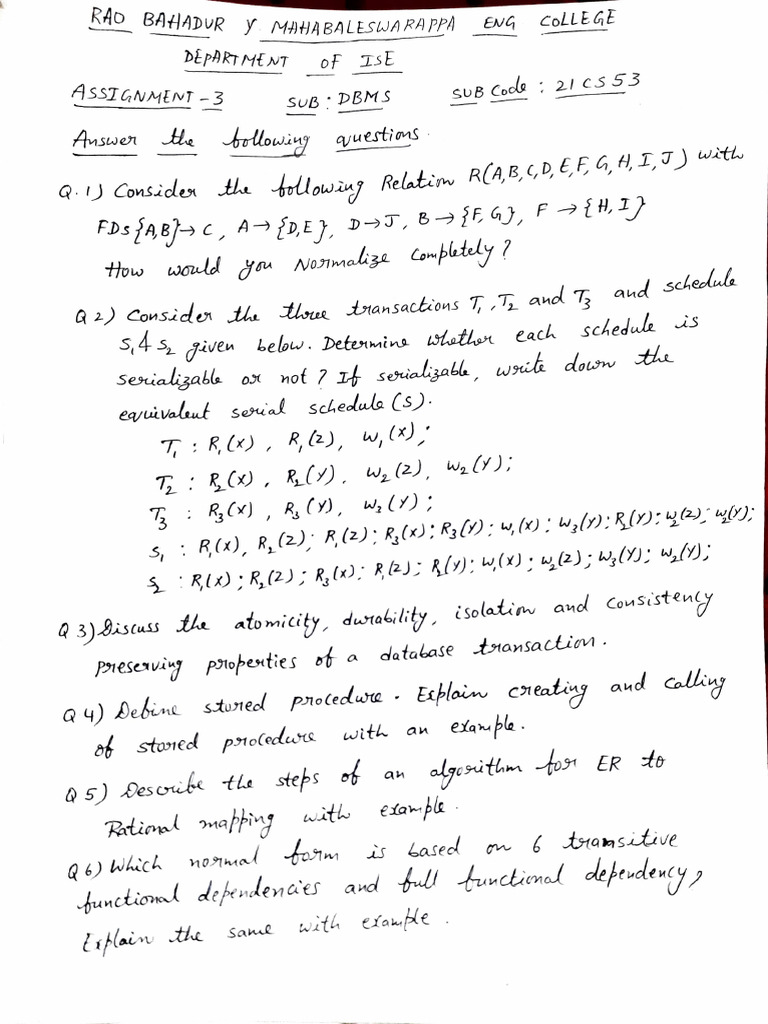 RAO BAHADUR Y MAHABALESWARAPPA ENG COLLEGE
DEPARTMENT OF ISE
ASSIGNMENT-3 SUB: DBMS SUB Code: 21CS53
Answer the following questions.
Q.1) Consider the following Relation R(A,B,C,D,E,F,G,H,I,J) with
FDs {A,B}→C, A→{D,E}, D→J, B→{F,G}, F→{H,I}
How would you Normalize Completely?
Q2) Consider the three transactions T1, T2 and T3 and schedule
S1 & S2 given below. Determine whether each schedule is
serializable or not? If serializable, write down the
equivalent serial schedule(s).
T1 : R1(X), R1(Z), W1(X);
T2 : R2(X), R2(Y), W2(Z), W2(Y);
T3 : R3(X), R3(Y), W3(Y);
S1 : R1(X), R2(Z); R1(Z); R3(X); R3(Y); W1(X); W3(Y); R2(Y); W2(Z); W2(Y);
S2 : R1(X); R2(Z); R3(X); R1(Z); R2(Y); W1(X); W2(Z); W3(Y); W2(Y);
Q3) Discuss the atomicity, durability, isolation and consistency
preserving properties of a database transaction.
Q4) Define stored procedure. Explain creating and calling
of stored procedure with an example.
Q5) Describe the steps of an algorithm for ER to
Rational mapping with example.
Q6) Which normal form is based on 6 transitive
functional dependencies and full functional dependency,
Explain the same with example.